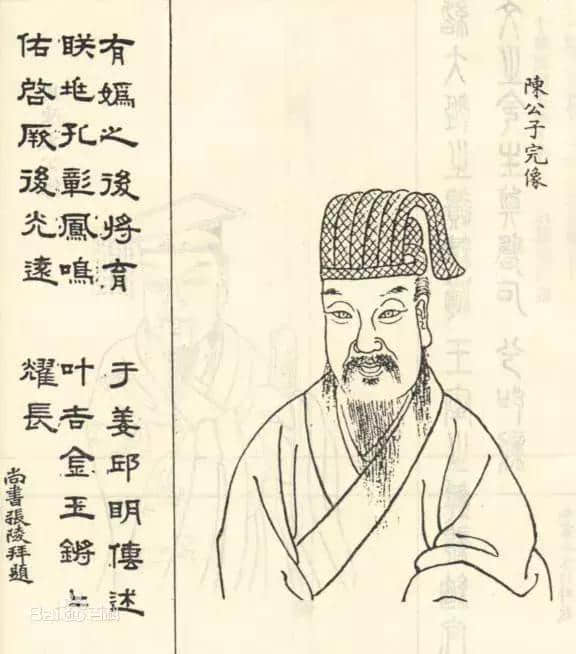 陳公子完像
有媯之後將育 于姜邱明傳述
眹兆孔彰鳳鳴 叶吉金玉鏘〻
佑啓厥後光遠 耀長
尚書張陵拜題
Bai百科